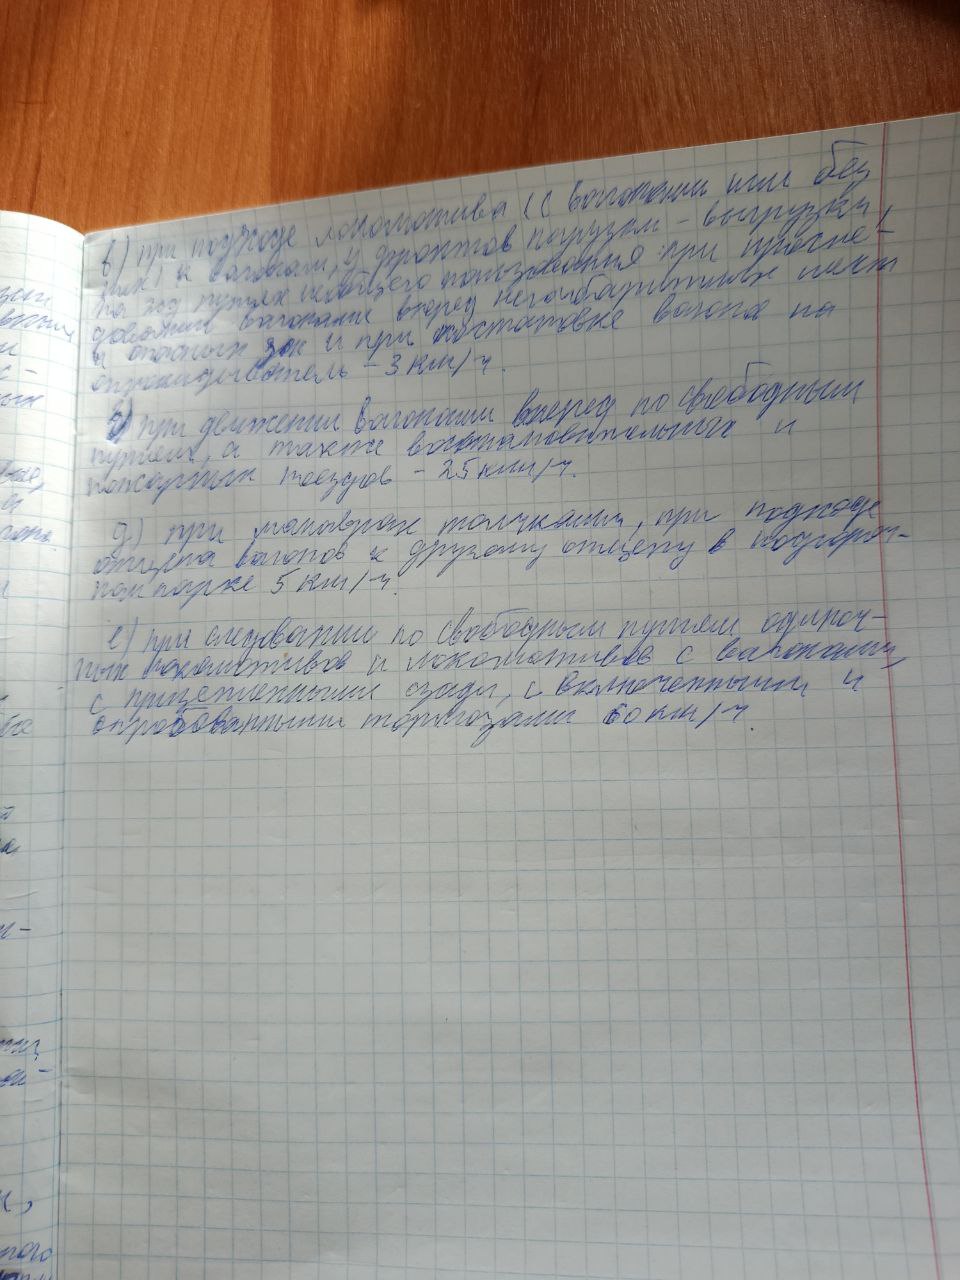 в) при подходе локомотива (с вагонами или без
них) к вагонам, у фронтов погрузки - выгрузки,
на жд путях необщего пользования при просле-
довании вагонами вперед негабаритных мест
и опасных зон и при постановке вагона на
опрокидыватель - 3 км/ч.
г) при движении вагонами вперед по свободным
путям, а также восстановительных и
пожарных поездов - 25 км/ч.
д) при маневрах толчками, при подходе
отцепа вагонов к другому отцепу в подгороч-
ном парке 5 км/ч.
е) при следовании по свободным путям одиноч-
ных локомотивов и локомотивов с вагонами,
с прицепленными сзади, с включенными и
опробованными тормозами 60 км/ч.